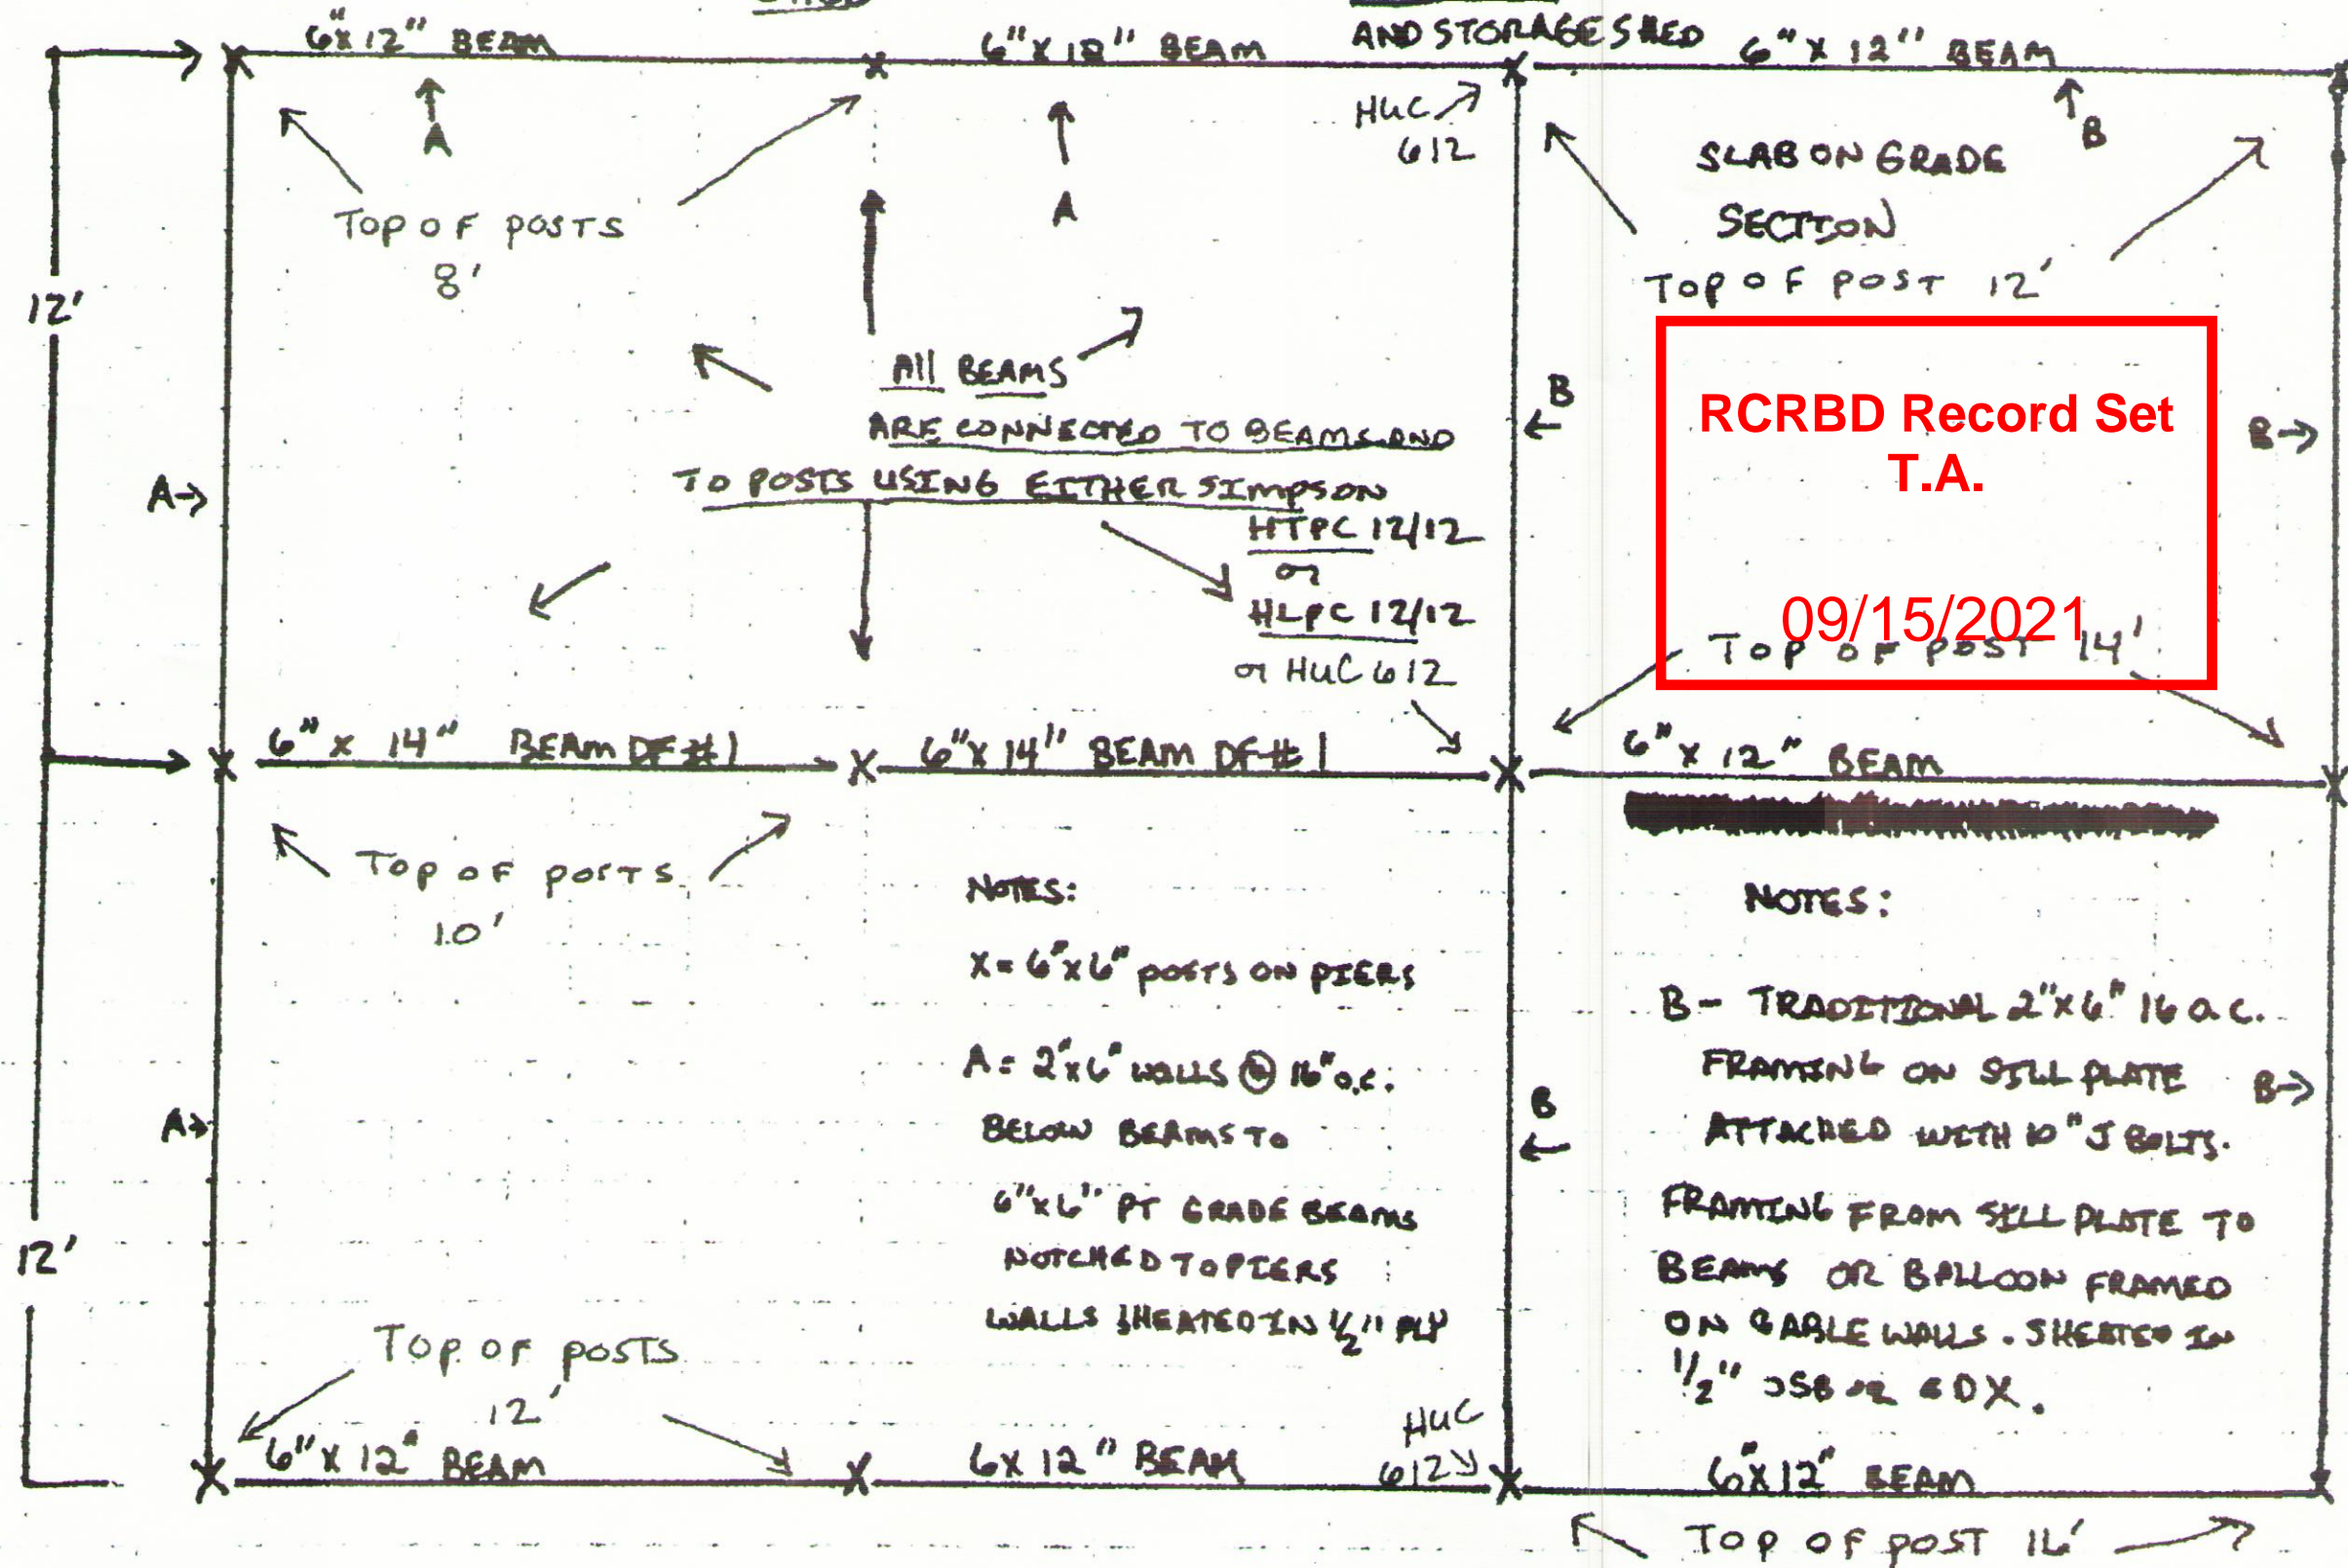 AND STORAGE SHED
6"x12" BEAM
6"x12" BEAM
6"x12" BEAM
A
A
HUC
612
B
TOP OF POSTS
8'
SLAB ON GRADE
SECTION
TOP OF POST 12'
12'
All BEAMS
ARE CONNECTED TO BEAMS AND
TO POSTS USING EITHER SIMPSON
HTPC 12/12
or
HLPC 12/12
or HUC 612
A
B
B
RCRBD Record Set
T.A.
09/15/2021
TOP OF POST 14'
6" x 14" BEAM DF#1
6"x14" BEAM DF#1
6"x12" BEAM
TOP OF POSTS
10'
NOTES:
X = 6"x6" POSTS ON PIERS
A = 2"x6" WALLS @ 16" o.c.
BELOW BEAMS TO
6"x6" PT GRADE BEAMS
NOTCHED TO PIERS
WALLS SHEATED IN 1/2" PLY
NOTES:
B - TRADITIONAL 2"x6" 16 O.C.
FRAMING ON SILL PLATE
ATTACHED WITH 10" J BOLTS.
FRAMING FROM SILL PLATE TO
BEAMS OR BALLOON FRAMED
ON GABLE WALLS. SHEATED IN
1/2" OSB OR CDX.
A
B
B
12'
TOP OF POSTS
12'
6"x12" BEAM
6x12" BEAM
HUC
612
6"x12" BEAM
TOP OF POST 16'